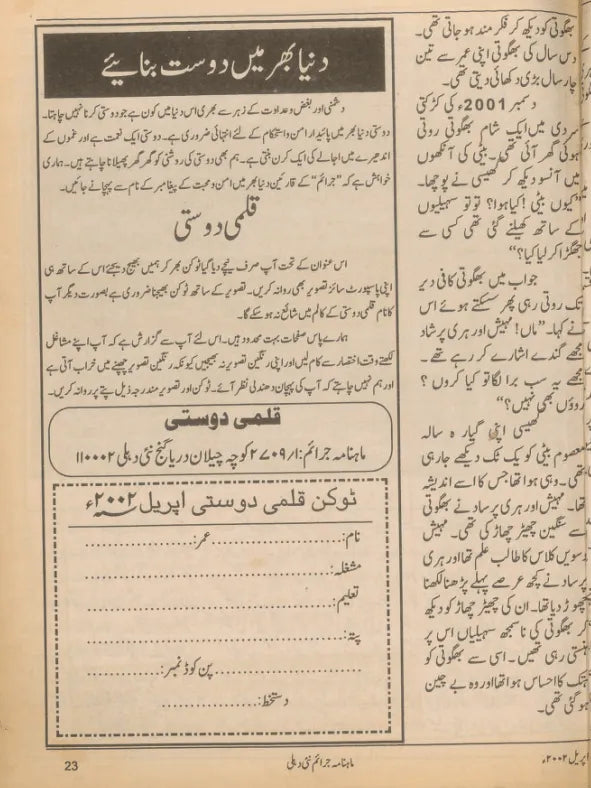 بھگوتی کو دیکھ کر فکر مند ہو جاتی تھی۔
دس سال کی بھگوتی اپنی عمر سے تین
چار سال بڑی دکھائی دیتی تھی۔
دسمبر 2001ء کی کڑکتی
سردی میں ایک شام بھگوتی روتی
ہوئی گھر آئی تھی۔ بیٹی کی آنکھوں
میں آنسو دیکھ کر گھیسی نے پوچھا۔
”کیوں بیٹی! کیا ہوا؟ تو تو سہیلیوں
کے ساتھ کھیلنے گئی تھی کسی سے
جھگڑا کر لیا کیا؟“
جواب میں بھگوتی کافی دیر
تک روتی رہی پھر سسکتے ہوئے اس
نے کہا۔ ”ماں! مہیش اور ہری پرشاد
مجھے گندے اشارے کر رہے تھے۔
مجھے یہ سب برا لگا تو کیا کروں؟
روؤں بھی نہیں؟“
گھیسی اپنی گیارہ سالہ
معصوم بیٹی کو یک ٹک دیکھے جارہی
تھی۔ وہی ہوا تھا جس کا اسے اندیشہ
تھا۔ مہیش اور ہری پرساد نے بھگوتی
سے سنگین چھیڑ چھاڑ کی تھی۔ مہیش
دسویں کلاس کا طالب علم تھا اور ہری
پرساد نے کچھ عرصے پہلے پڑھنا لکھنا
چھوڑ دیا تھا۔ ان کی چھیڑ چھاڑ کو دیکھ
کر بھگوتی کی ناسمجھ سہیلیاں اس پر
ہنستی رہی تھیں۔ اسی سے بھگوتی کو
ہتک کا احساس ہوا تھا اور وہ بے چین
ہو گئی تھی۔
دنیا بھر میں دوست بنائیے
دشمنی اور بغض و عداوت کے زہر سے بھری اس دنیا میں کون ہے جو دوستی کرنا نہیں چاہتا۔
دوستی دنیا بھر میں پائیدار امن و استحکام کے لئے انتہائی ضروری ہے۔ دوستی ایک نعمت ہے اور غموں کے
اندھیرے میں اجالے کی ایک کرن بنتی ہے۔ ہم بھی دوستی کی روشنی کو گھر گھر پھیلانا چاہتے ہیں۔ ہماری
خواہش ہے کہ ”جرائم“ کے قارئین دنیا بھر میں امن و محبت کے پیغامبر کے نام سے پہچانے جائیں۔
قلمی دوستی
اس عنوان کے تحت آپ صرف نیچے دیا گیا ٹوکن بھر کر ہمیں بھیج دیجئے اس کے ساتھ ہی
اپنی پاسپورٹ سائز تصویر بھی روانہ کریں۔ تصویر کے ساتھ ٹوکن بھیجنا ضروری ہے بصورت دیگر آپ
کا نام قلمی دوستی کے کالم میں شائع نہ ہو سکے گا۔
ہمارے پاس صفحات بہت محدود ہیں۔ اس لئے آپ سے گزارش ہے کہ آپ اپنے مشاغل
لکھتے وقت اختصار سے کام لیں اور اپنی رنگین تصویر نہ بھیجیں کیونکہ رنگین تصویر چھپنے میں خراب آتی ہے
اور ہم نہیں چاہتے کہ آپ کی پہچان دھندلی نظر آئے۔ ٹوکن اور تصویر مندرجہ ذیل پتے پر روانہ کریں۔
قلمی دوستی
ماہنامہ جرائم: ۱/ ۲۷۰۹ کوچہ چیلان دریا گنج نئی دہلی ۱۱۰۰۰۲
ٹوکن قلمی دوستی اپریل ۲۰۰۲ء
نام:..............................عمر:........................
مشغلہ:................................................
تعلیم:................................................
پتہ:................................................
..............................پن کوڈ نمبر:....................
دستخط:..............................
اپریل ۲۰۰۲ء
ماہنامہ جرائم نئی دہلی
23